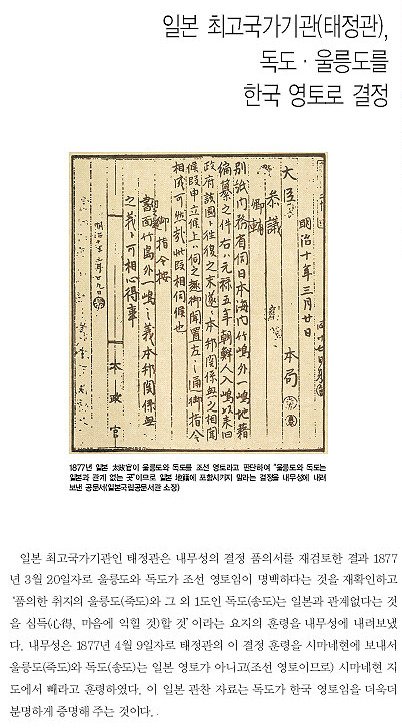 일본 최고국가기관(태정관),
독도·울릉도를
한국 영토로 결정
明治十年三月廿日
大臣
本局
参議
卿輔
別紙内務省伺日本海内竹嶋外一嶋地籍
編纂之件右ハ元禄五年朝鮮人入嶋以来旧
政府該国ト往復之末遂ニ本邦関係無之相聞
候段申立候上ハ伺之趣御聞置左之通御指令
相成可然哉此段相伺候也
御指令按
書面竹島外一嶋之義本邦関係無
之義ト可相心得事
明治十年三月廿九日
太政官
1877년 일본 太政官이 울릉도와 독도를 조선 영토라고 판단하여 "울릉도와 독도는
일본과 관계 없는 곳"이므로 일본 地籍에 포함시키지 말라는 결정을 내무성에 내려
보낸 공문서(일본국립공문서관 소장)
일본 최고국가기관인 태정관은 내무성의 결정 품의서를 재검토한 결과 1877
년 3월 20일자로 울릉도와 독도가 조선 영토임이 명백하다는 것을 재확인하고
'품의한 취지의 울릉도(죽도)와 그 외 1도인 독도(송도)는 일본과 관계없다는 것
을 심득(心得, 마음에 익힐 것)할 것'이라는 요지의 훈령을 내무성에 내려보냈
다. 내무성은 1877년 4월 9일자로 태정관의 이 결정 훈령을 시마네현에 보내서
울릉도(죽도)와 독도(송도)는 일본 영토가 아니고(조선 영토이므로) 시마네현 지
도에서 빼라고 훈령하였다. 이 일본 관찬 자료는 독도가 한국 영토임을 더욱더
분명하게 증명해 주는 것이다.